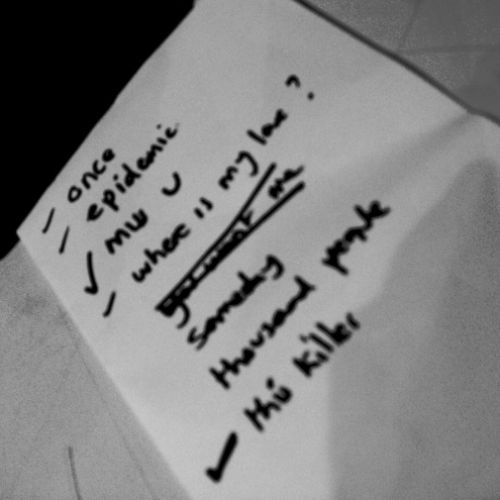 - once
- epidemic
✓ mw u
- where is my love?
you want me
someday
thousand people
✓ thú killer